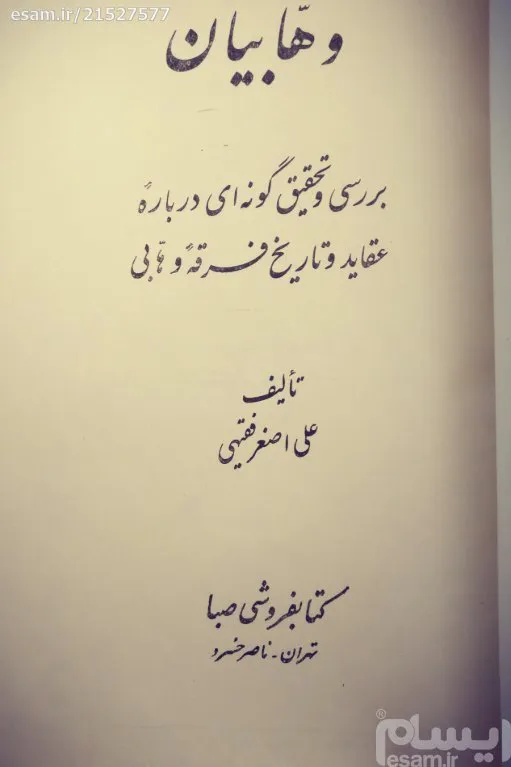 esam.ir/21527577
وهّابیان
بررسی و تحقیق گونه‌ای دربارهٔ
عقاید و تاریخ فرقهٔ وهّابی
تألیف
علی اصغر فقیهی
کتابفروشی صبا
تهران - ناصر خسرو
ایسام®
esam.ir